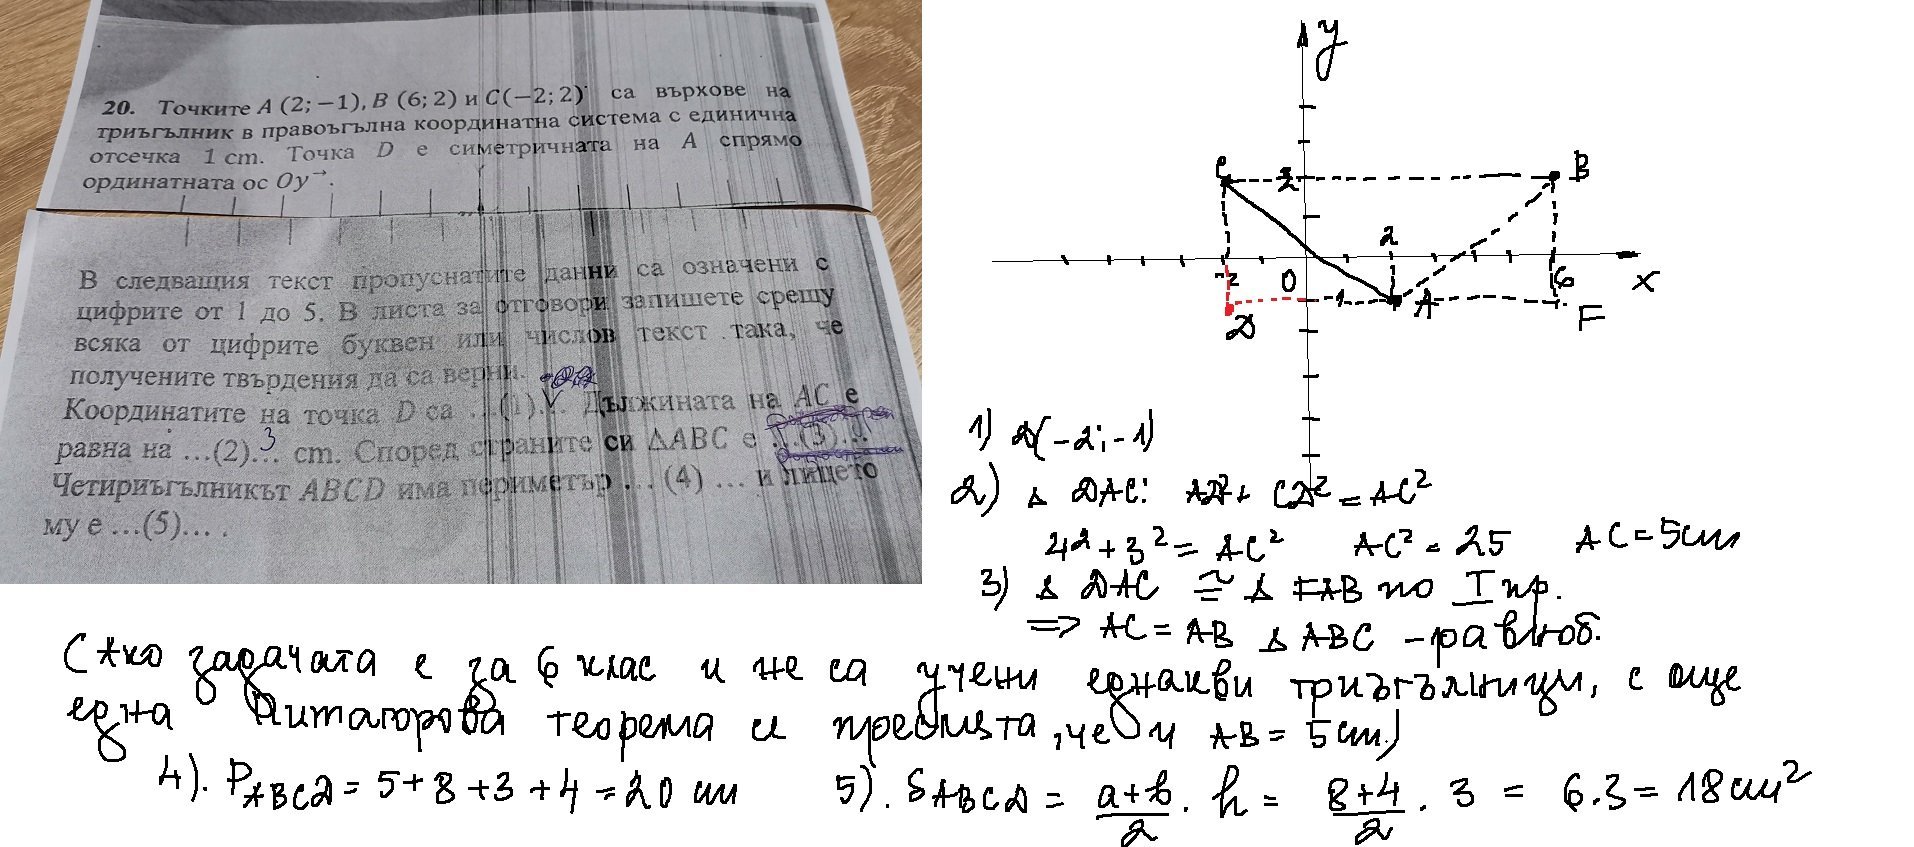 20. Точките A (2; −1), B (6; 2) и C(−2; 2) са върхове на
триъгълник в правоъгълна координатна система с единична
отсечка 1 cm. Точка D е симетричната на A спрямо
ординатната ос Oy→.
В следващия текст пропуснатите данни са означени с
цифрите от 1 до 5. В листа за отговори запишете срещу
всяка от цифрите буквен или числов текст така, че
получените твърдения да са верни.
Координатите на точка D са ...(1)... Дължината на AC е
равна на ...(2)... 3 cm. Според страните си ΔABC е ...(3)...
Четириъгълникът ABCD има периметър ... (4) ... и лицето
му е ...(5)... .
y
C 2 B
2
-2 0 6 x
D -1 A F
1) D(-2; -1)
2) Δ DAC: AD² + CD² = AC²
4² + 3² = AC² AC² = 25 AC = 5cm
3) Δ DAC ≅ Δ FAB по I пр.
=> AC = AB Δ ABC - равноб.
(Ако задачата е за 6 клас и не са учени еднакви триъгълници, с още
една Питагорова теорема се пресмята, че и AB = 5cm.)
4). P ABCD = 5 + 8 + 3 + 4 = 20 cm
5). S ABCD = a+b/2 . h = 8+4/2 . 3 = 6.3 = 18 cm²